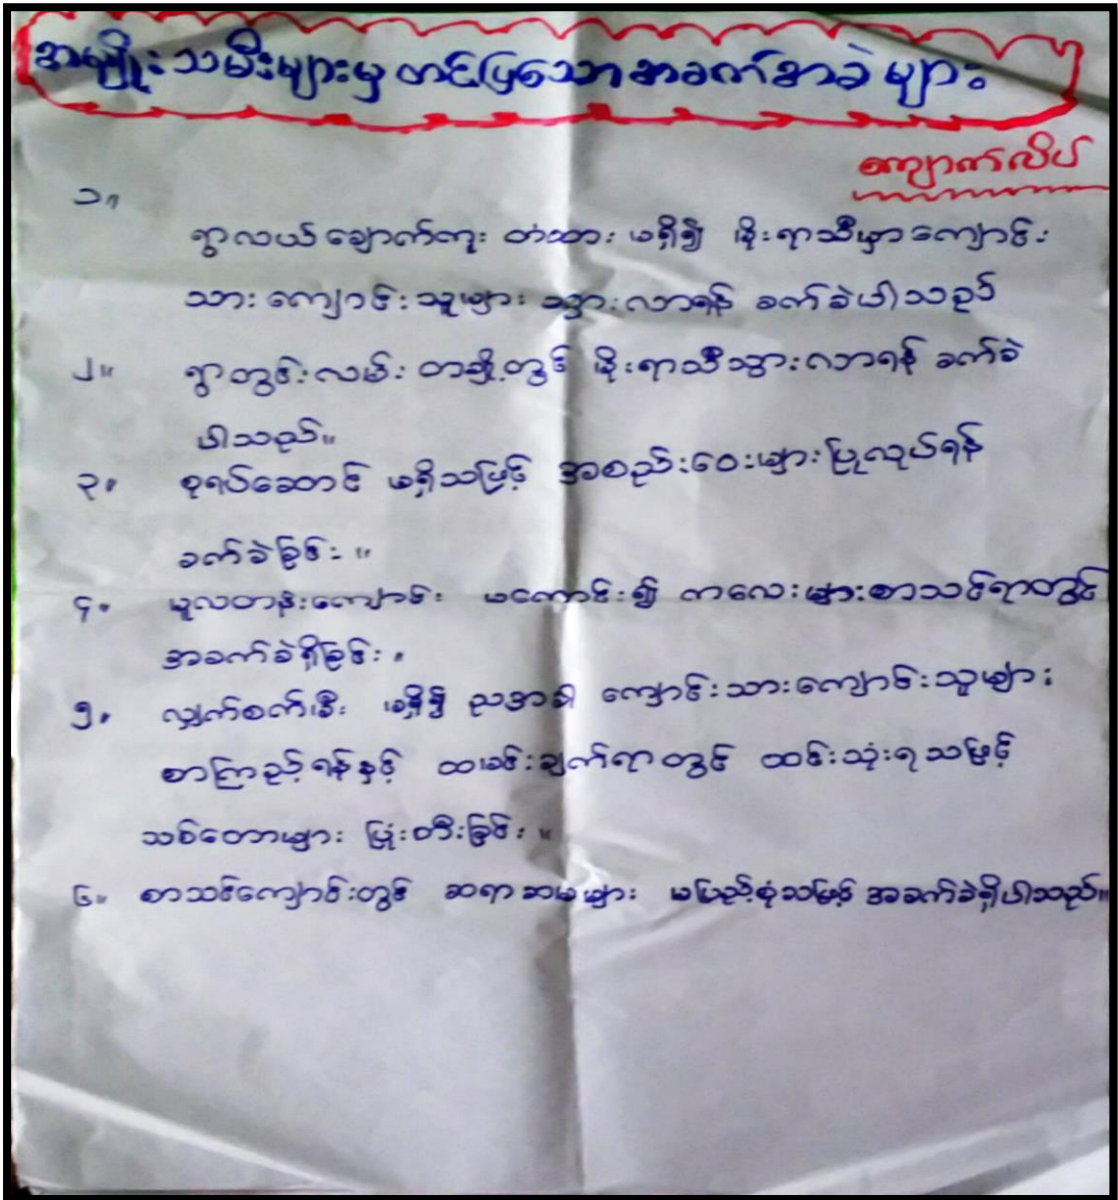 အမျိုးသမီးများမှ တင်ပြသော အခက်အခဲ များ
ကျောက်လိပ်
၁။
ရွာလယ်ချောက်ကူး တံထား မရှိ၍ မိုးရာသီမှာကျောင်း
သား ကျောင်းသူများ သွားလာရန် ခက်ခဲပါသည်
၂။ ရွာတွင်းလမ်း တချို့တွင် မိုးရာသီသွားလာရန် ခက်ခဲ
ပါသည်။
၃။ စုရပ်ဆောင် မရှိသဖြင့် အစည်းဝေးများပြုလုပ်ရန်
ခက်ခဲခြင်း ။
၄။ မူလတန်းကျောင်း မကောင်း၍ ကလေးများစာသင်ရာတွင်
အခက်ခဲရှိခြင်း ။
၅။ လျှက်စက်မီး မရှိ၍ ညအခါ ကျောင်းသားကျောင်းသူများ
စာကြည့်ရန်နှင့် ထမင်းချက်ရာတွင် ထင်းသုံးရသဖြင့်
သစ်တောများ ပြုံးတီးခြင်း ။
၆။ စာသင်ကျောင်းတွင် ဆရာဆမများ မပြည့်စုံသဖြင့် အခက်ခဲရှိပါသည်။